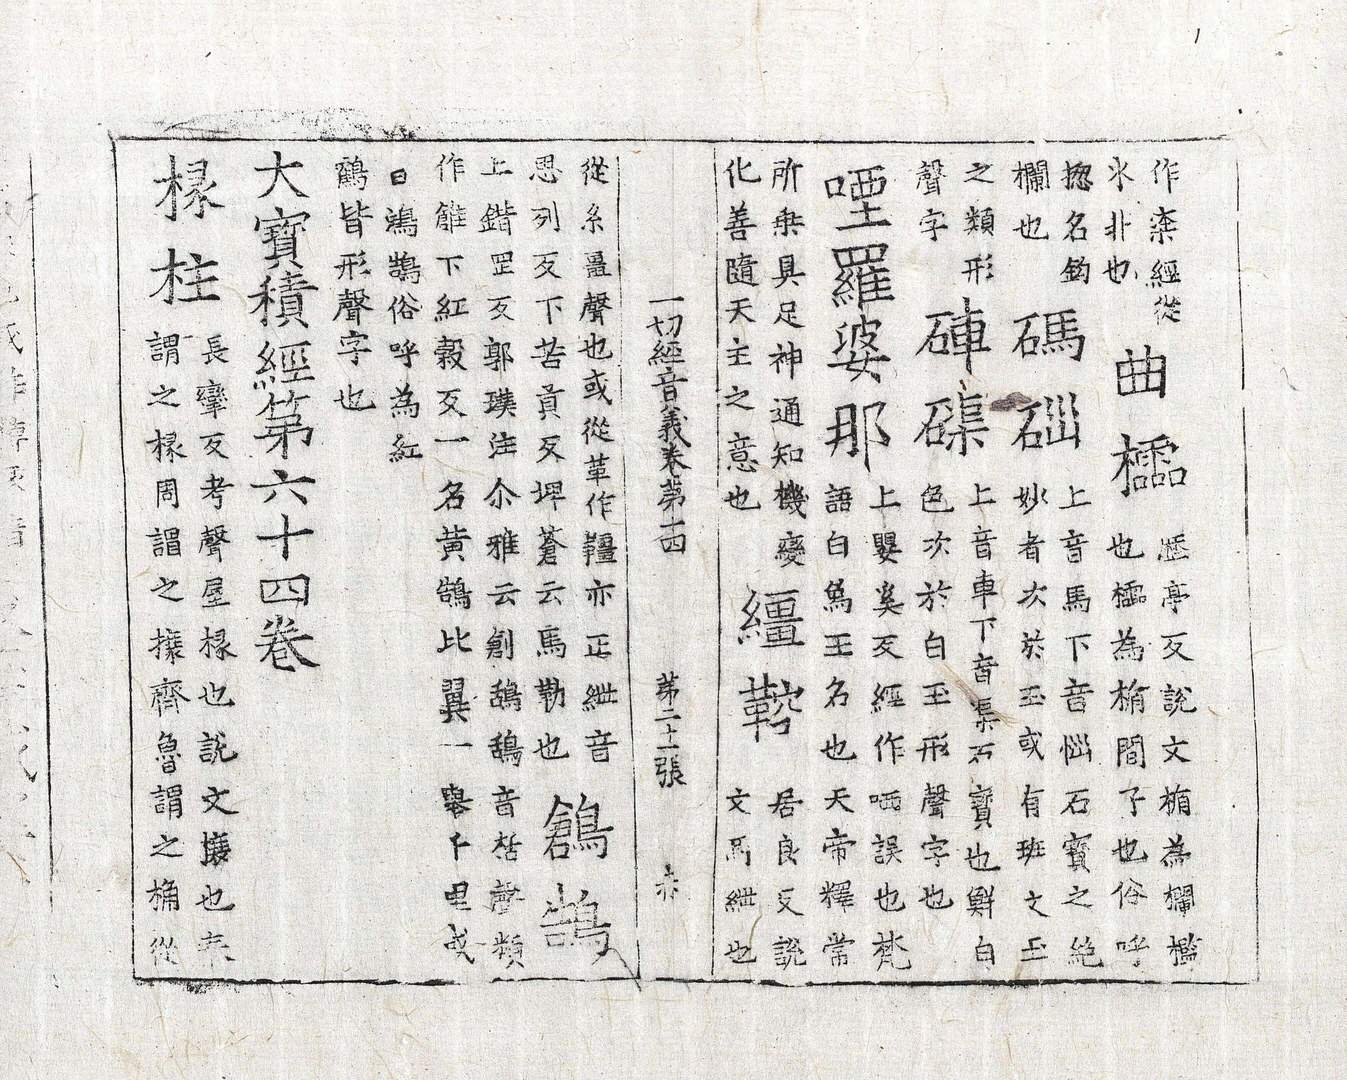 作㮈經從
氷非也
曲櫺
歷亭反說文楯為欄檻
也櫺為楯間子也俗呼
揔名鈎
欄也
碼碯
上音馬下音惱石寶之絶
妙者次於玉或有班文玉
之類形
聲字
硨磲
上音車下音渠石寶也鮮白
色次於白玉形聲字也
堙羅婆那
上嬰奚反經作哂誤也梵
語白象王名也天帝釋常
所乗具足神通知機變
化善隨天主之意也
繮鞚
居良反說
文馬紲也
一切經音義卷第十四 第二十二張 亦
從糸畺聲也或從革作韁亦正紲音
思列反下苦貢反埤蒼云馬勒也
鶬鵠
上錯罡反郭璞注尒雅云創鴰鴰音栝聲類
作鶬下紅穀反一名黄鵠比翼一舉千里或
曰鴻鵠俗呼為紅
鶴皆形聲字也
大寶積經第六十四卷
椽柱
長攣反考聲屋椽也説文榱也秦
謂之椽周謂之榱齊魯謂之桷從